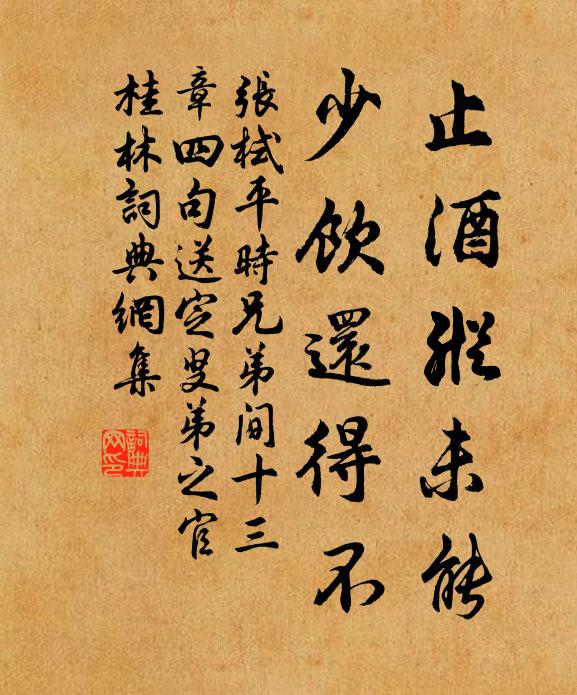 止酒縱未能
少飲還得不
張栻平時兄弟間十三
章四句送定叟弟之官
桂林詞典網集
詞典网印